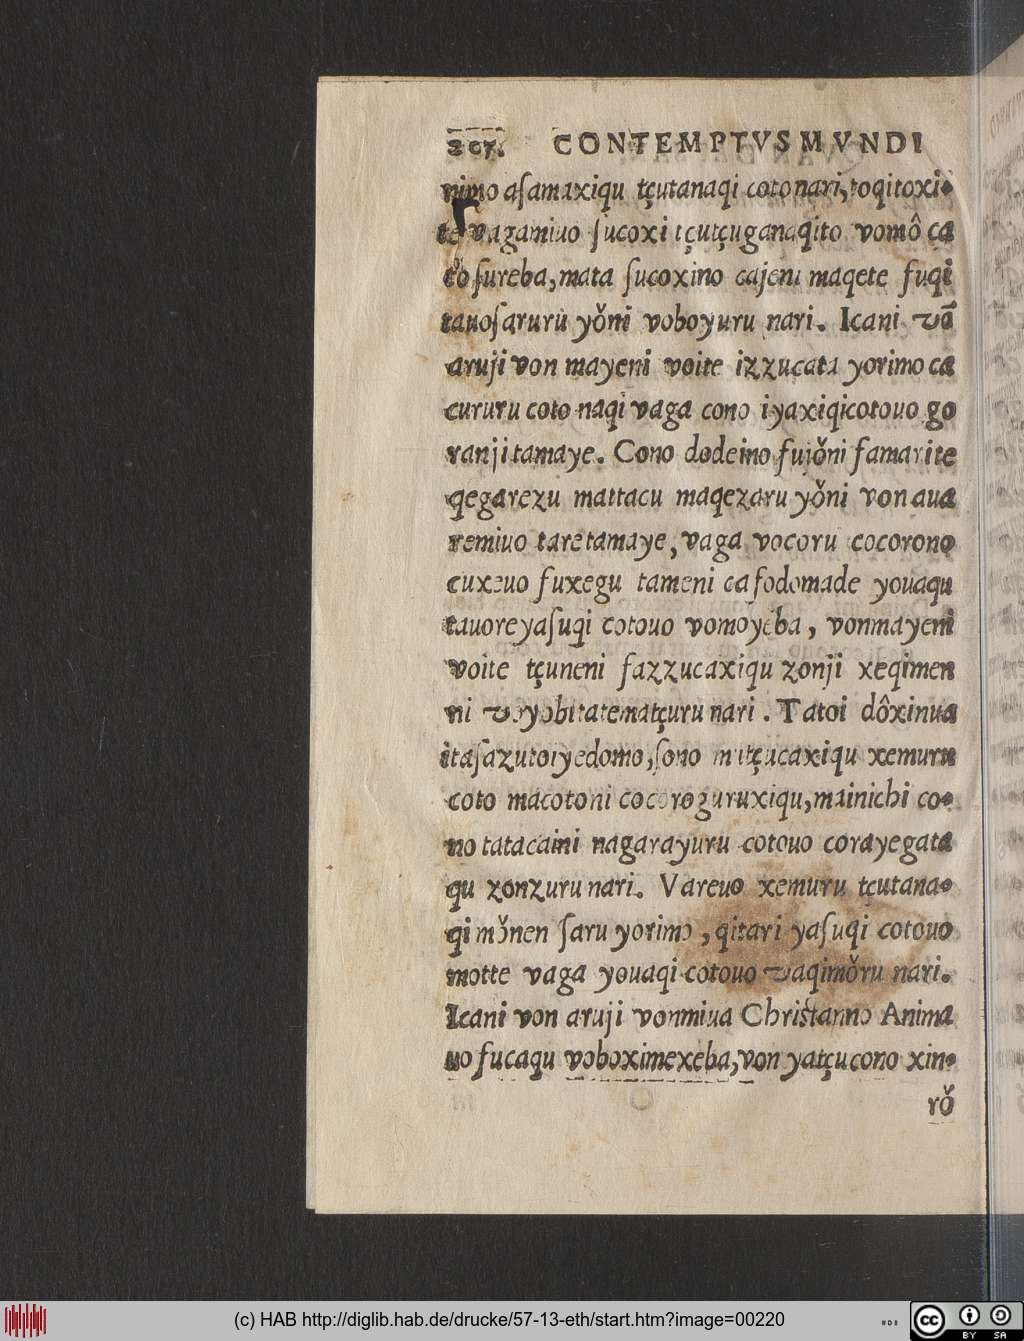 207. CONTEMPTVS MVNDI
nimo asamaxiqu tçutanaqi coto nari, toqitoxi-
te vagamiuo sucoxi tçutçuganaqito vomô ca
to sureba, mata sucoxino cajeni maqete fuqi
tauosaruru yǒni voboyuru nari. Icani vō
aruji von mayeni voite izzucata yorimo ca
cururu coto naqi vaga cono iyaxiqicotouo go
ranji tamaye. Cono dodeino fujǒni famarite
qegarezu mattacu maqezaru yǒni von aua
remiuo taretamaye, vaga vocoru cocorono
cuxeuo fuxegu tameni cafodomade youaqu
tauoreyasuqi cotouo vomoyeba, vonmayeni
voite tçuneni fazzucaxiqu zonji xeqimen
ni voyobitatematçuru nari. Tatoi dôxinua
itasazutoiyedomo, sono mutçucaxiqu xemuru
coto macotoni cocoroguruxiqu, mainichi co-
no tatacaini nagarayuru cotouo corayegata
qu zonzuru nari. Vareuo xemuru tçutana-
qi mǒnen saru yorimo, qitari yasuqi cotouo
motte vaga youaqi cotouo vaqimǒru nari.
Icani von aruji vonmiua Christanno Anima
uo fucaqu voboximexeba, von yatçucono xin-
rǒ
(c) HAB http://diglib.hab.de/drucke/57-13-eth/start.htm?image=00220
cc BY SA